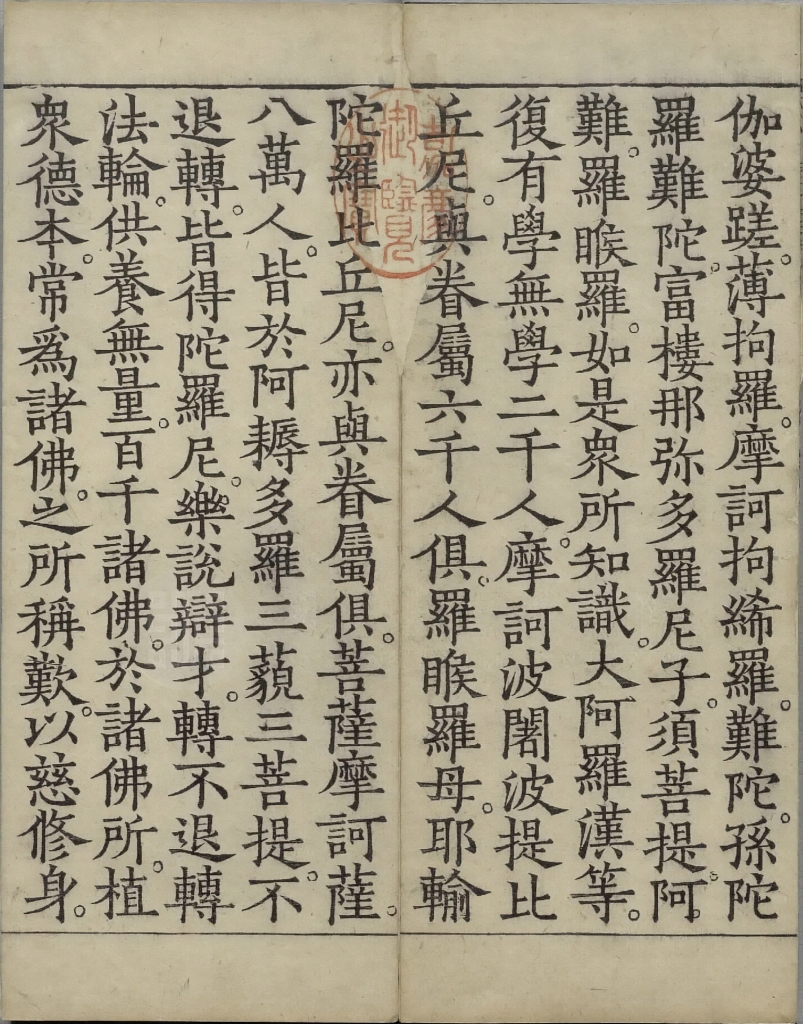 伽婆蹉。薄拘羅。摩訶拘絺羅。難陀。孫陀
羅難陀。富樓那弥多羅尼子。須菩提。阿
難。羅睺羅。如是衆所知識。大阿羅漢等。
復有學無學二千人。摩訶波闍波提比
丘尼。與眷屬六千人俱。羅睺羅母。耶輸
陀羅比丘尼。亦與眷屬俱。菩薩摩訶薩。
八萬人。皆於阿耨多羅三藐三菩提。不
退轉。皆得陀羅尼。樂說辯才。轉不退轉
法輪。供養無量。百千諸佛。於諸佛所。植
衆德本。常爲諸佛。之所稱歎。以慈修身。